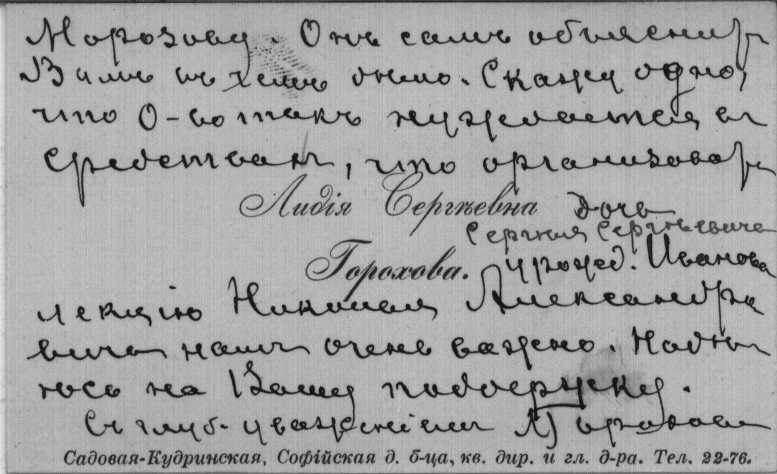 Морозову. Онъ самъ объяснитъ
Вамъ въ чемъ дѣло. Скажу одно,
что О-во такъ нуждается въ
средствахъ, что организовать
Лидія Сергѣевна дочь
Сергѣя Сергѣевича
Горохова. урожд. Иванова
лекцію Николая Александро
вича намъ очень важно. Надѣ
юсь на Вашу поддержку.
Съ глуб. уваженіемъ Л Горохова
Садовая-Кудринская, Софійская д. б-ца, кв. дир. и гл. д-ра. Тел. 22-76.